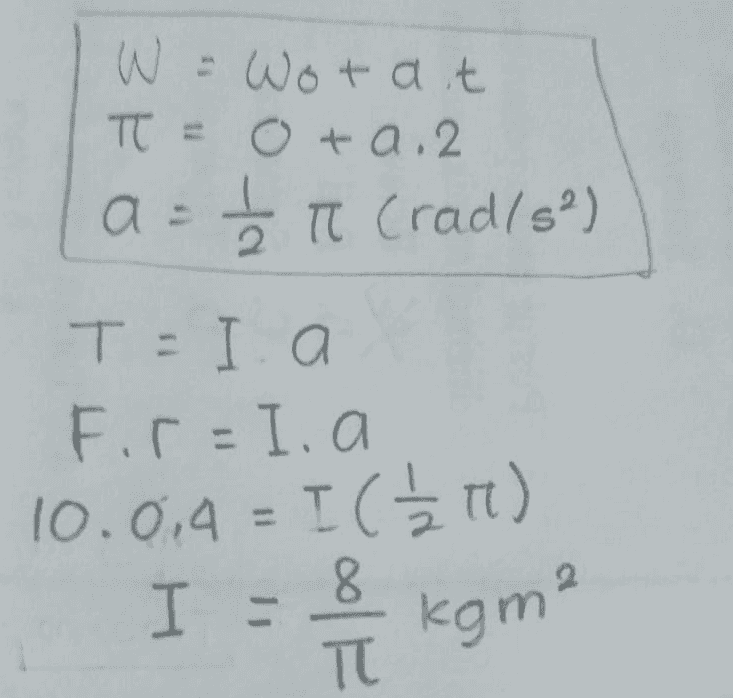 W = Wo + a.t
π = 0 + a.2
a = 1/2 π (rad/s²)
T = I.a
F.r = I.a
10.0,4 = I(1/2 π)
I = 8/π kgm²